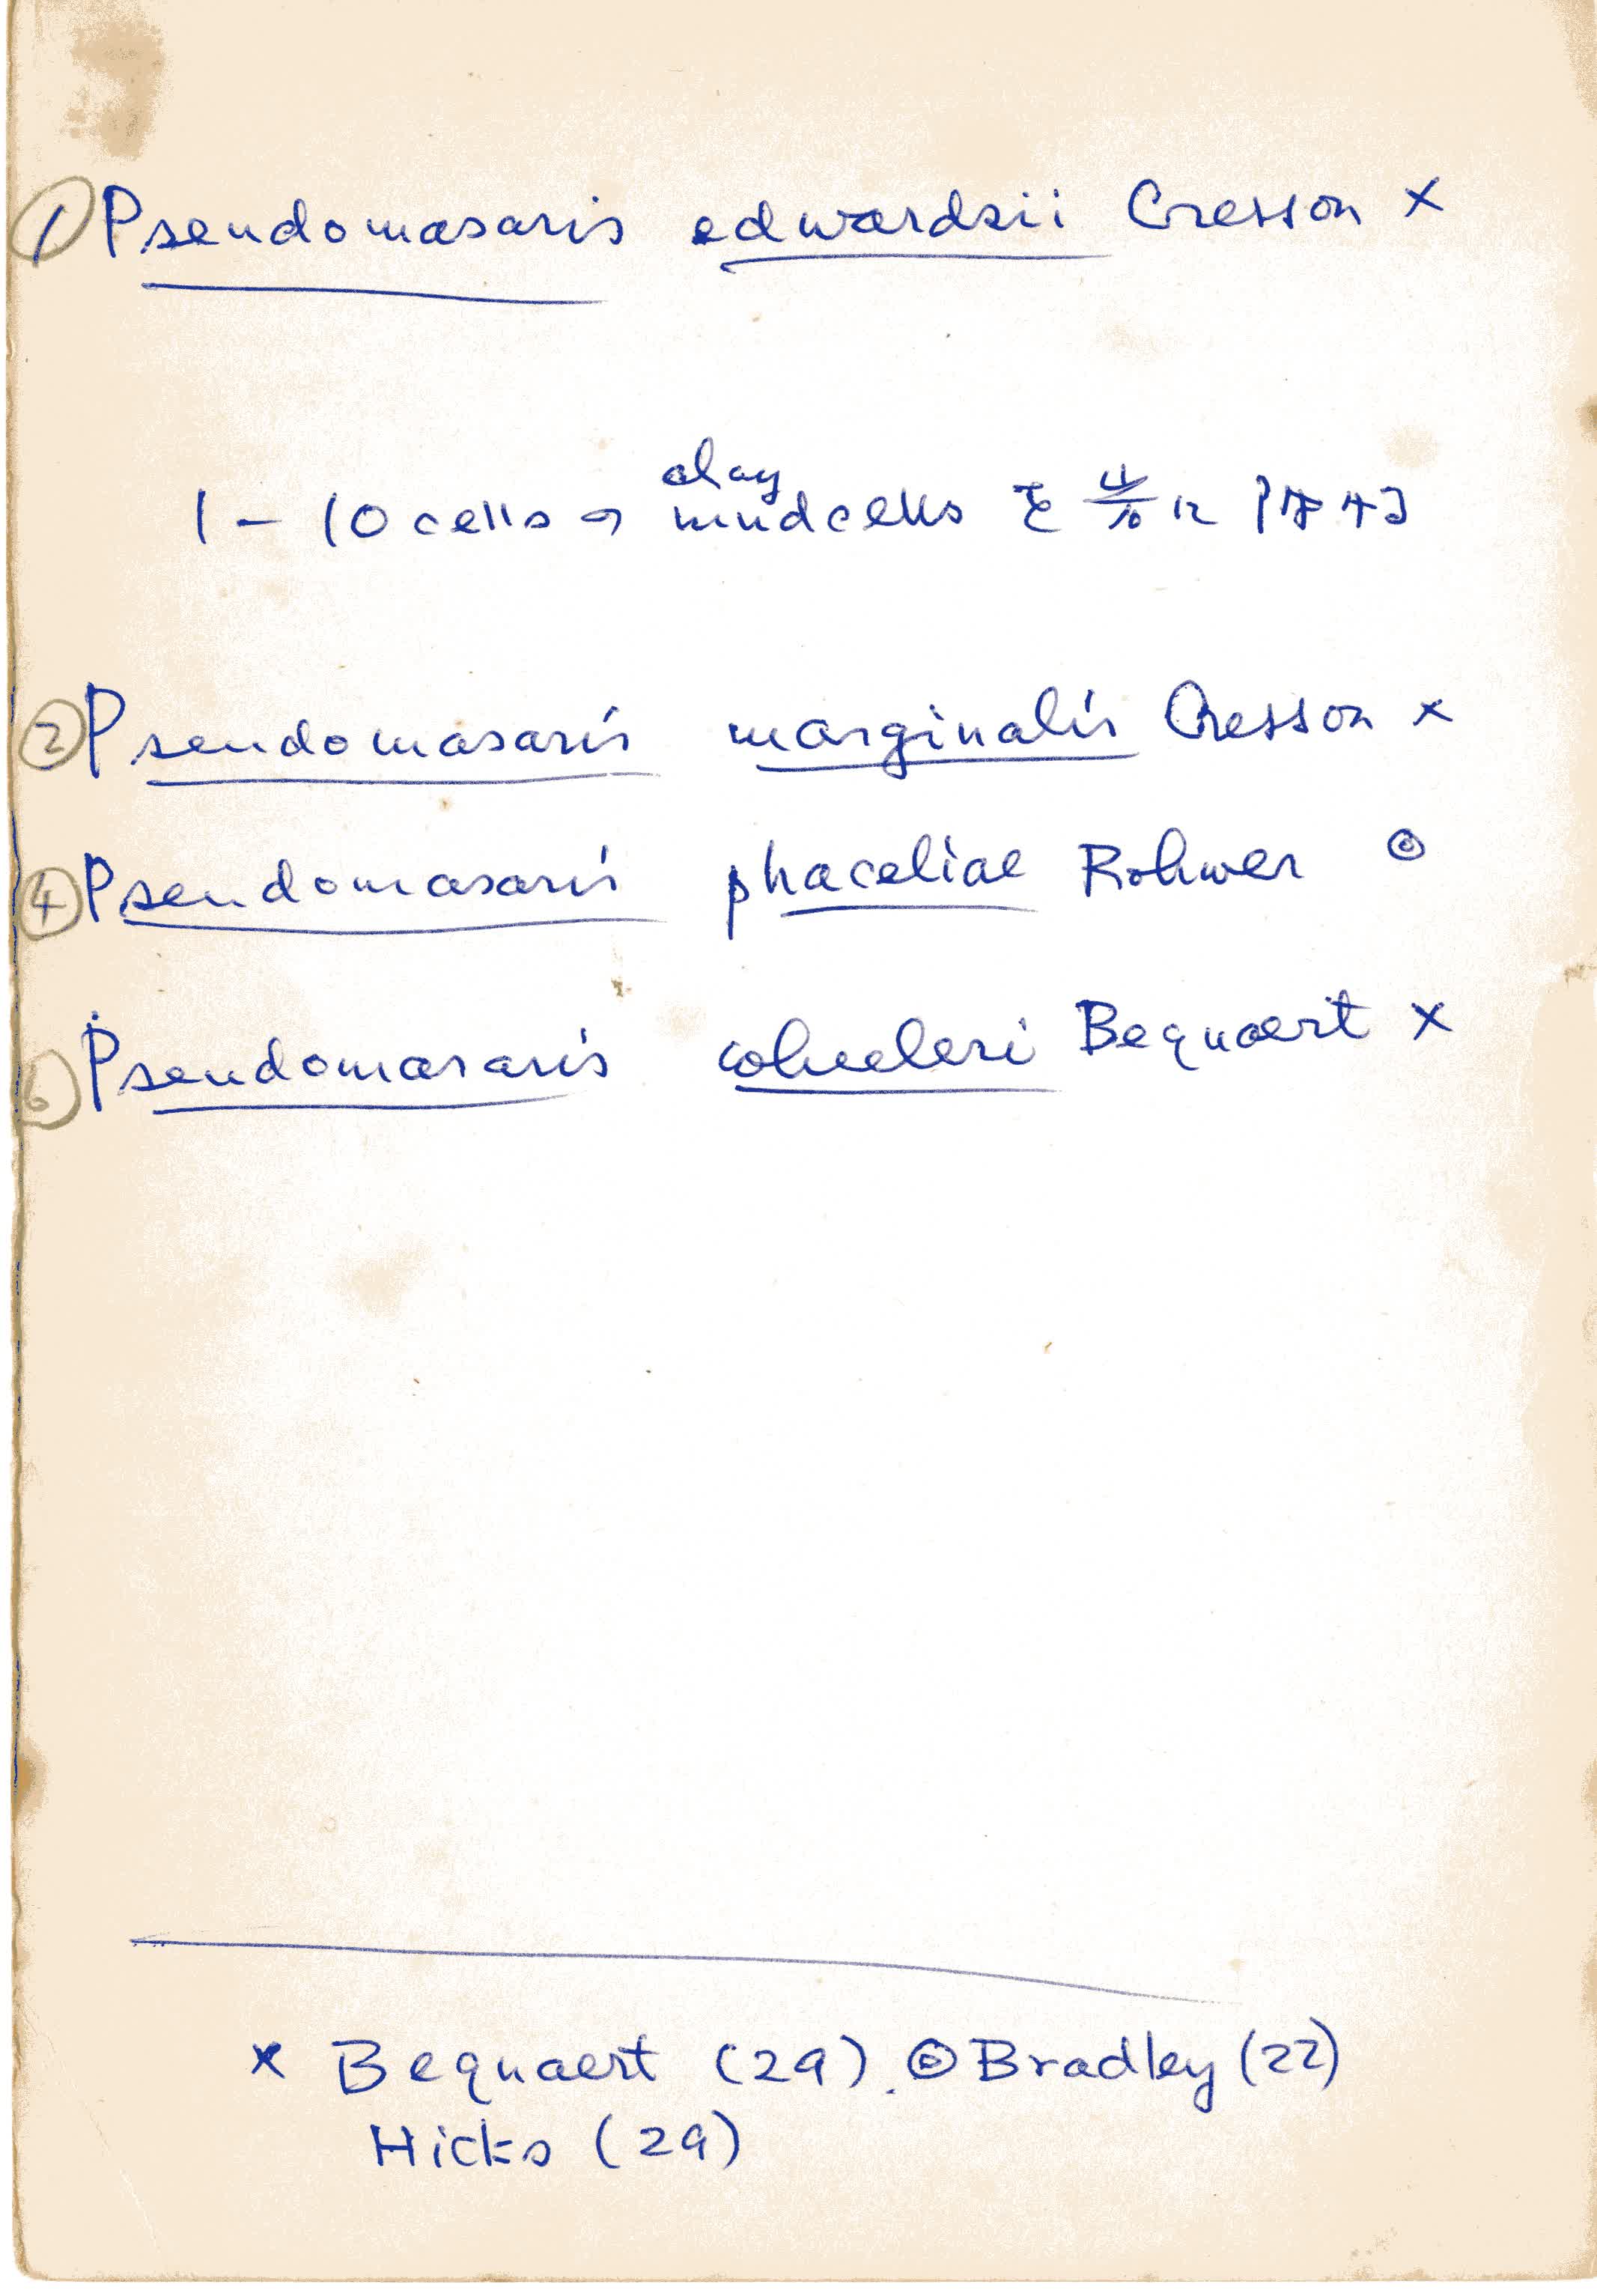 ① Pseudomasaris edwardsii Cresson ×
clay
1 – 10 cells の mud cells を 岩に
② Pseudomasaris marginalis Cresson ×
④ Pseudomasaris phaceliae Rohwer ◎
⑥ Pseudomasaris wheeleri Bequaert ×
× Bequaert (29). ◎ Bradley (22)
Hicks (29)